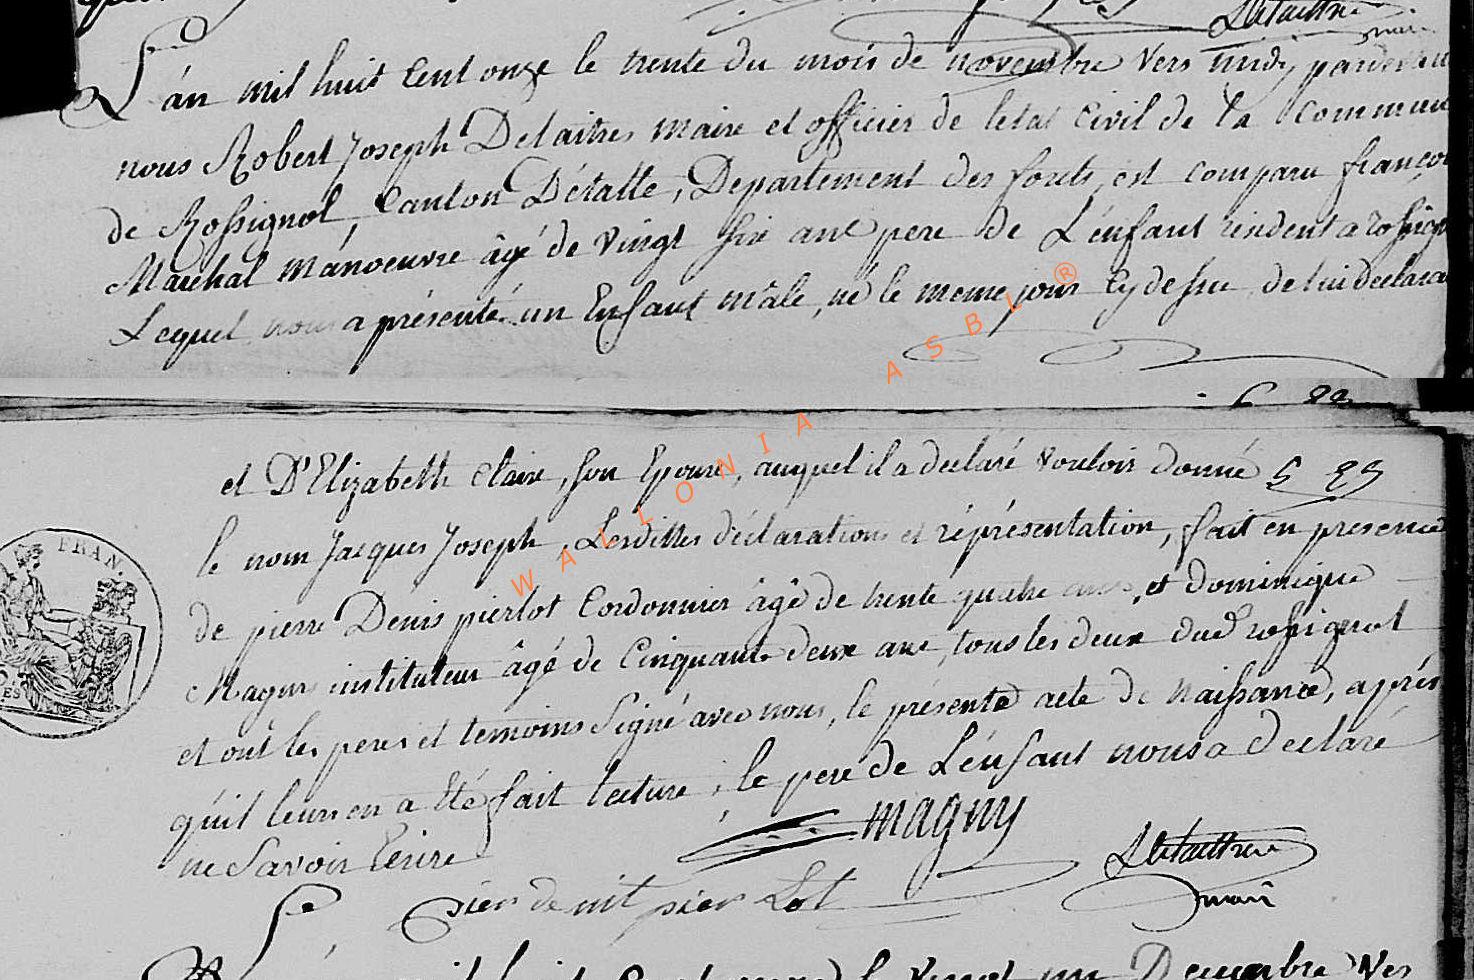 L'an mil huit Cent onze le trente du mois de novembre vers midy pardevant
nous Robert Joseph Delaitres maire et officier de letat Civil de la Commune
de Rossignol, Canton D'étalle, Departement des forets, est comparu françois
Maréhal Manoeuvre âgé de vingt six ans pere de L'énfant résident a rossignol
Lequel nous a présenté un Enfant mâle, né le meme jour Cy dessu, de lui declarant
et D'Elizabeth Claire, son Epouse, auquel il a declaré vouloir donné
le nom Jacques Joseph, Lesdittes déclarations et réprésentation, fait en presence
de pierre Denis pierlot Cordonnier âgé de trente quatre ans, et dominique
Magny instituteur âgé de Cinquante deux ans, tous les deux dud rossignol
et ont les peres et temoins Signé avec nous, le présente acte de Naissance, aprés
qu'il leurs en a Eté fait lecture, le pere de L'énfant nous a declaré
ne Savoir Ecrire
magny
pier denit pier Lot
mair
FRAN
WALLONIA ASBL ®